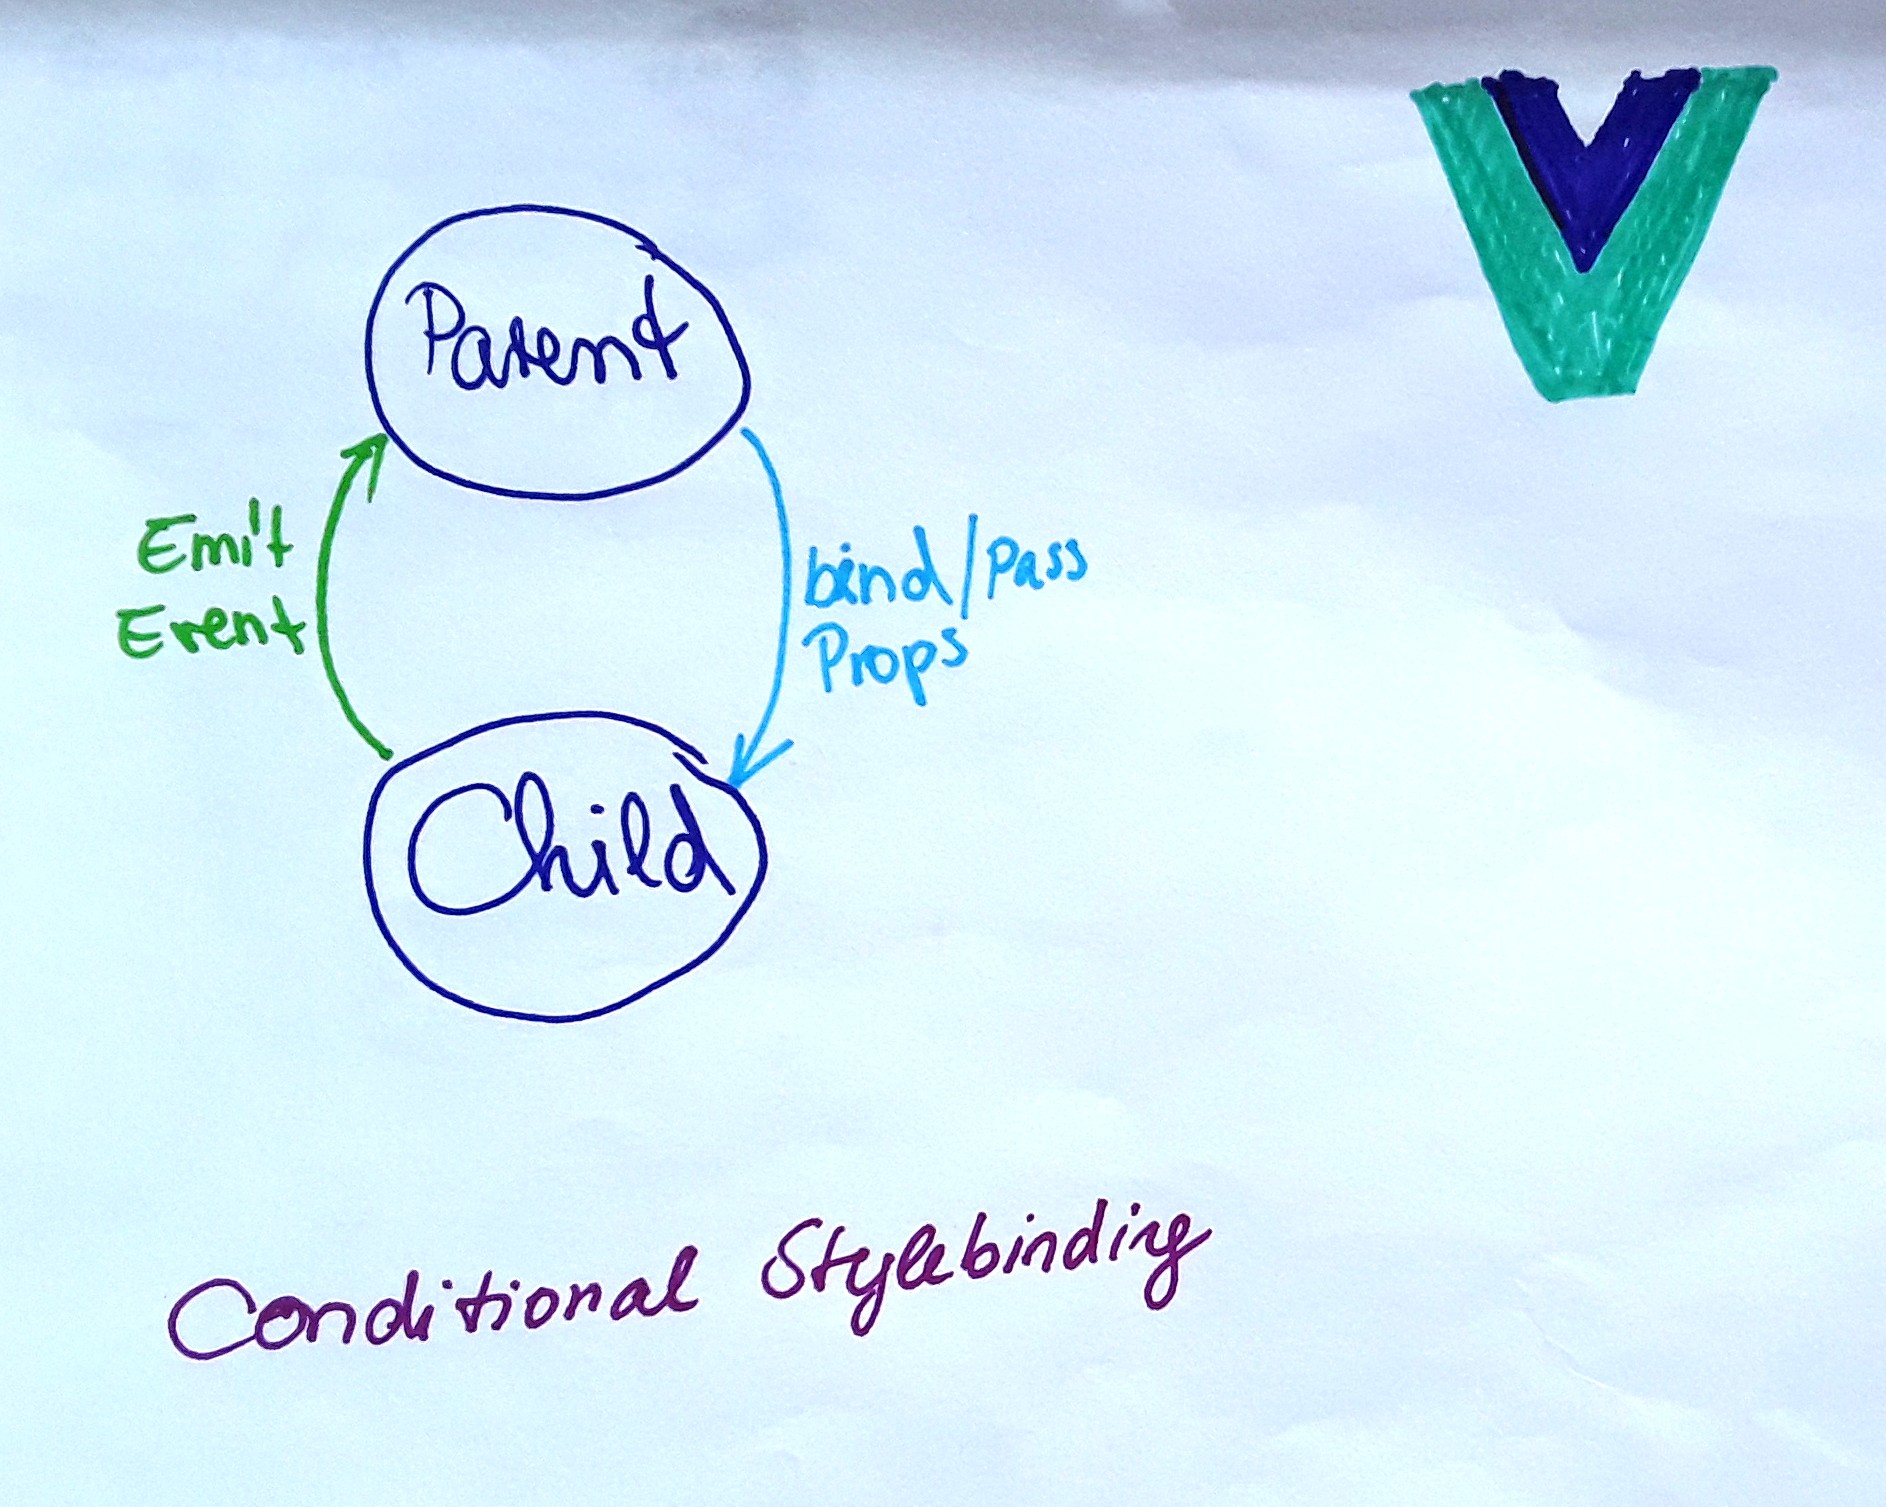 Parent
Emit
Event
bind/pass
Props
Child
Conditional Stylebinding